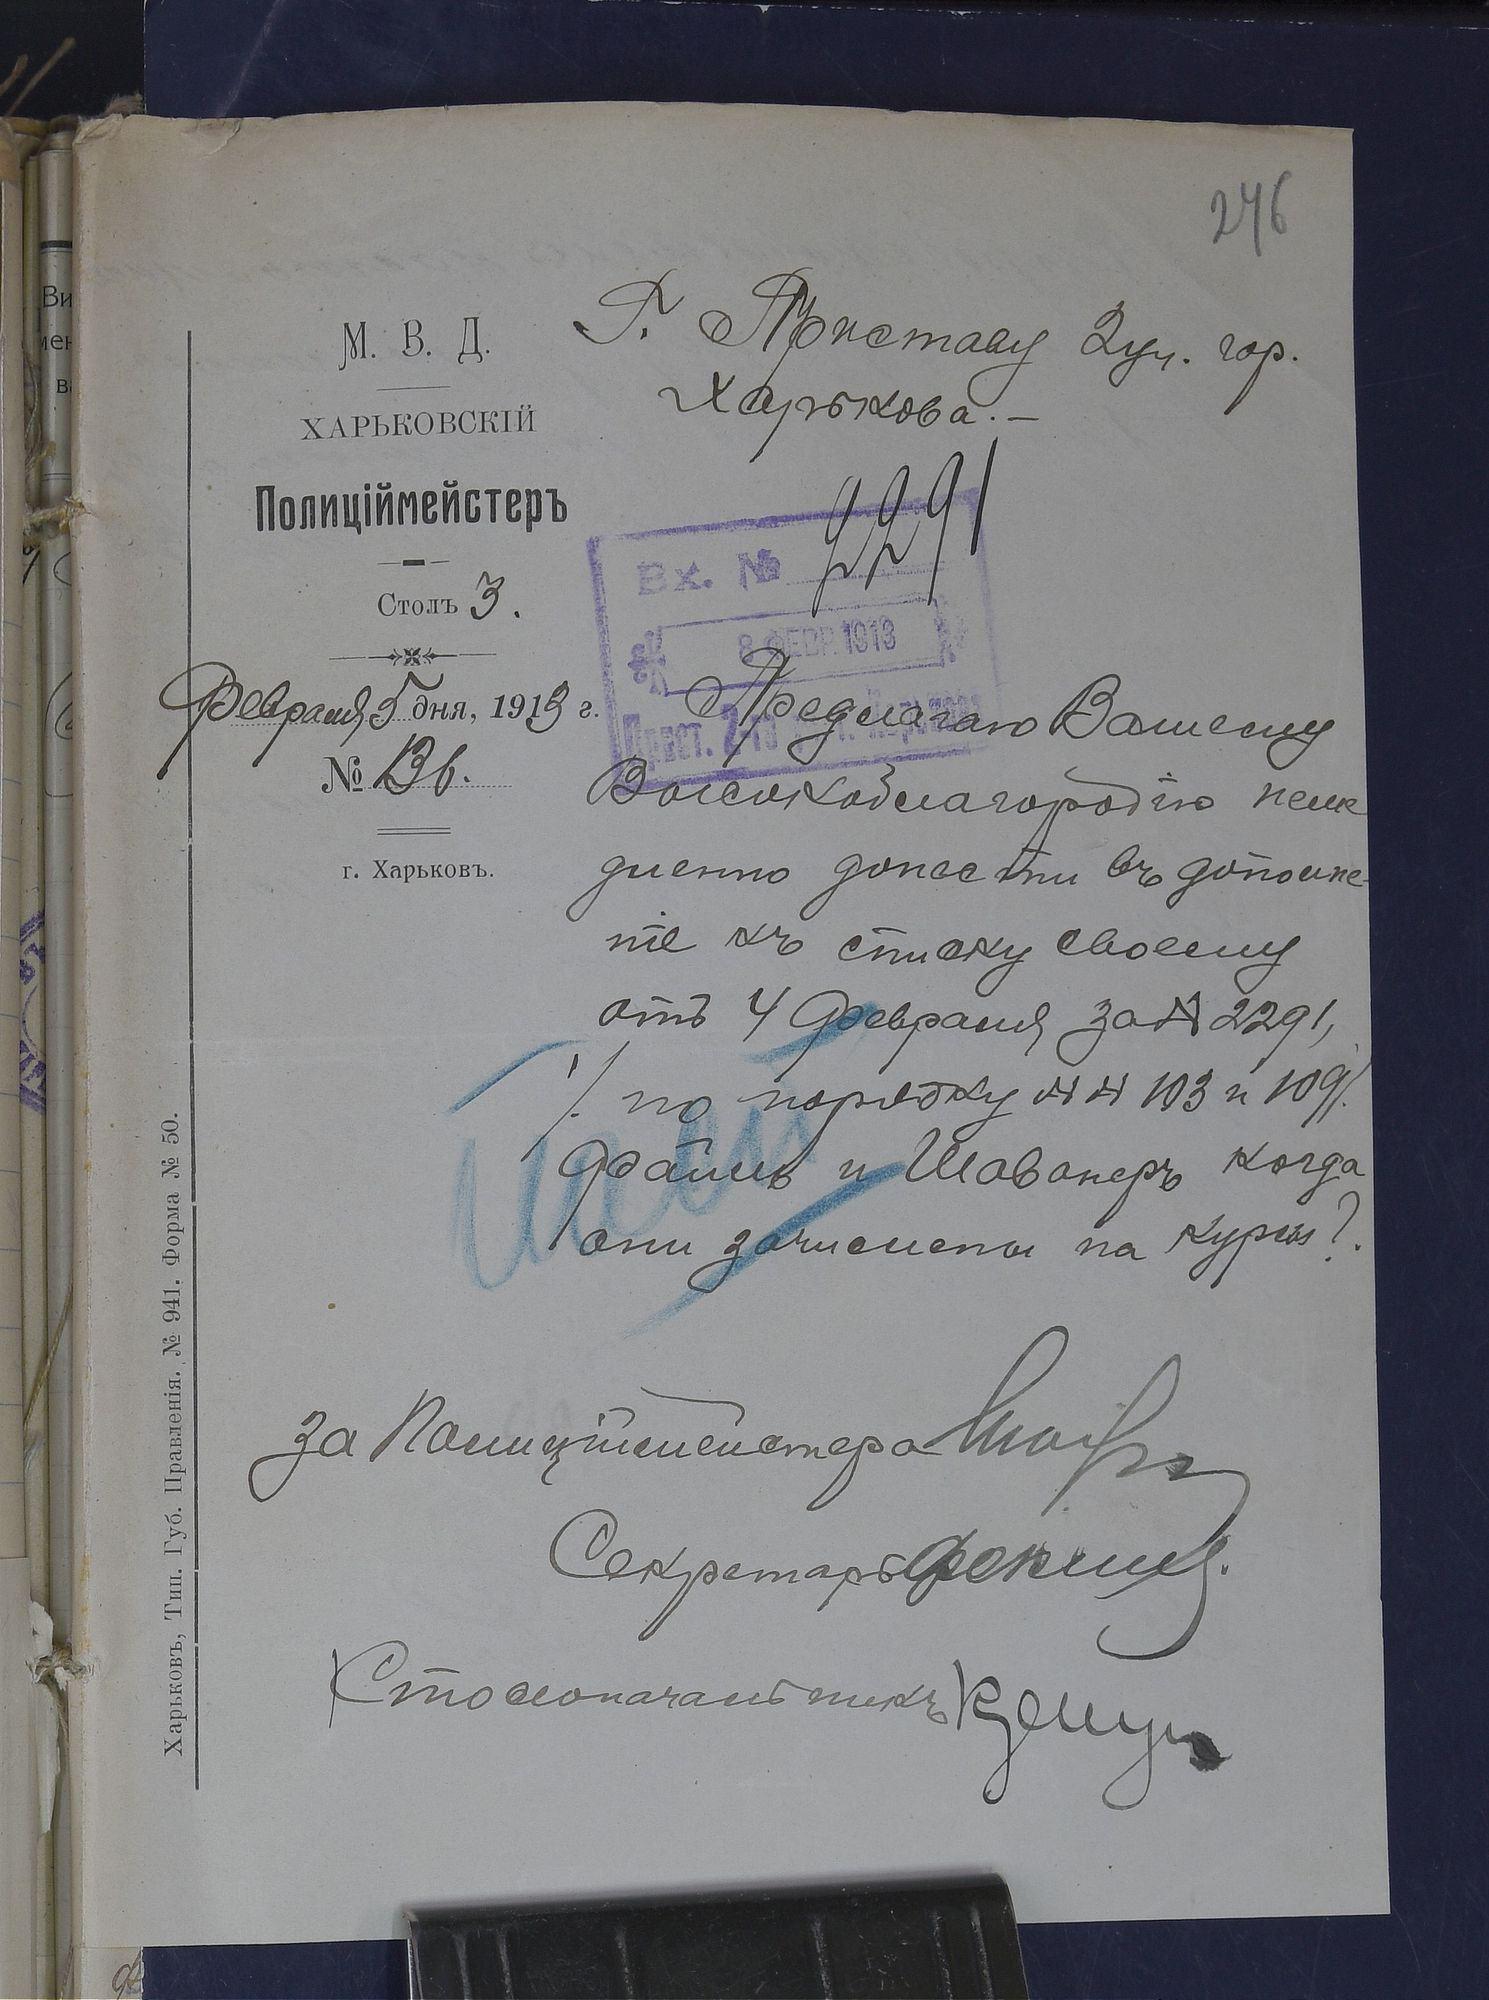 246
М. В. Д.
ХАРЬКОВСКІЙ
Полиціймейстеръ
Столъ 3.
Февраля 5 дня, 1913 г.
№
г. Харьковъ.
Г. Приставу 2 уч. гор.
Харькова. —
2291
Вх. №
8 ФЕВР. 1913
Прист. 2-го уч. г. Харькова
Предлагаю Вашему
Высокоблагородію неме
дленно донести въ дополне-
ніе къ списку своему
отъ 4 Февраля за № 2291,
/. по порядку №№ 103 и 109/.
Файль и Шаванеръ когда
они зачислены на курсы?.
за Полиціймейстера
Секретарь
Столоначальникъ
Харьковъ, Тип. Губ. Правленія. № 941. Форма № 50.